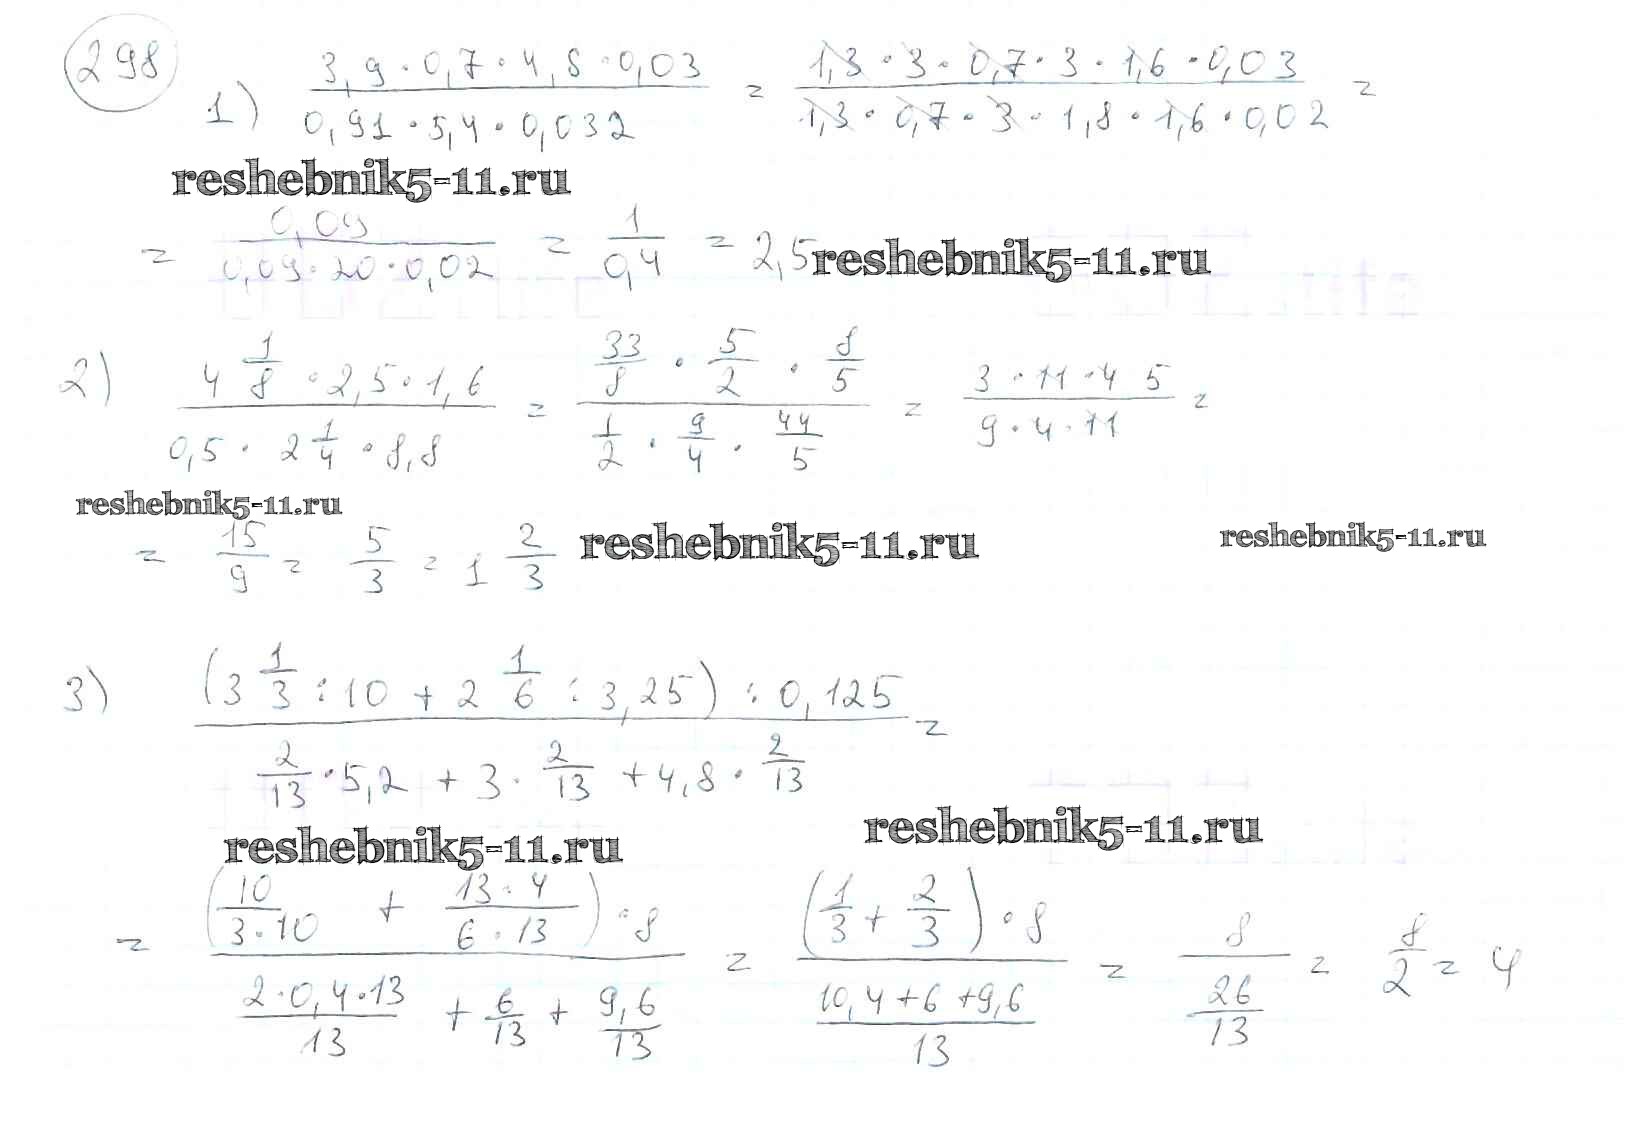 298
1) (3,9 · 0,7 · 4,8 · 0,03)/(0,91 · 5,4 · 0,032) = (1,3 · 3 · 0,7 · 3 · 1,6 · 0,03)/(1,3 · 0,7 · 3 · 1,8 · 1,6 · 0,02) =
reshebnik5-11.ru
= 0,09/(0,09 · 20 · 0,02) = 1/0,4 = 2,5
reshebnik5-11.ru
2) (4 1/8 · 2,5 · 1,6)/(0,5 · 2 1/4 · 8,8) = (33/8 · 5/2 · 8/5)/(1/2 · 9/4 · 44/5) = (3 · 11 · 4 5)/(9 · 4 · 11) =
reshebnik5-11.ru
= 15/9 = 5/3 = 1 2/3
reshebnik5-11.ru
reshebnik5-11.ru
3) ((3 1/3 : 10 + 2 1/6 : 3,25) : 0,125)/(2/13 · 5,2 + 3 · 2/13 + 4,8 · 2/13) =
reshebnik5-11.ru
reshebnik5-11.ru
= ((10/(3 · 10) + (13 · 4)/(6 · 13)) · 8)/((2 · 0,4 · 13)/13 + 6/13 + 9,6/13) = ((1/3 + 2/3) · 8)/((10,4 + 6 + 9,6)/13) = 8/(26/13) = 8/2 = 4